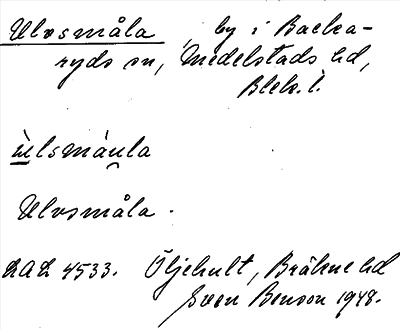 Ulvsmåla, by i Backa-
ryds sn, Medelstads hd,
Blek. l.
ùlsmảu̯la
Ulvsmåla.
LAL 4533. Öljehult, Bräkne hd
Sven Benson 1948.